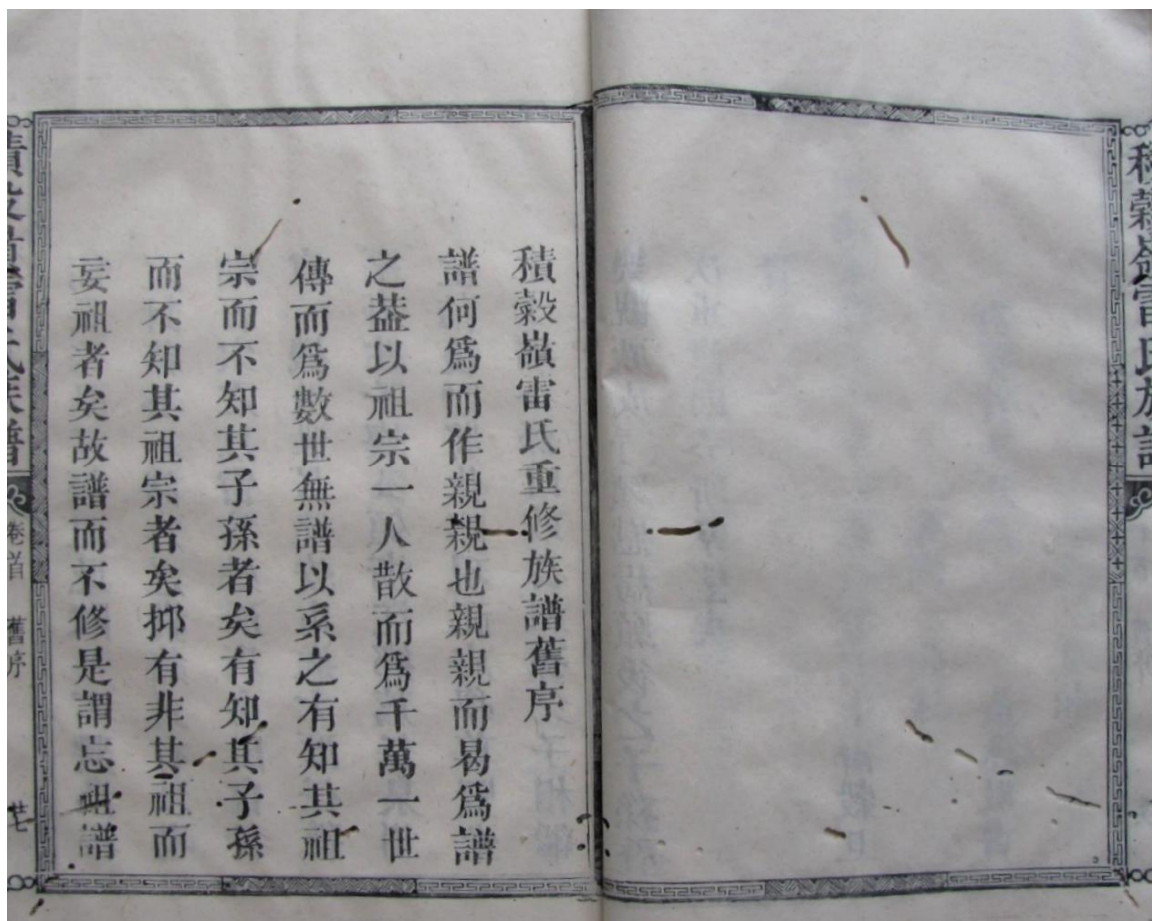 積穀嶺雷氏族譜
積穀嶺雷氏重修族譜舊序
譜何爲而作親親也親親而曷爲譜
之葢以祖宗一人散而爲千萬一世
傳而爲數世無譜以系之有知其祖
宗而不知其子孫者矣有知其子孫
而不知其祖宗者矣抑有非其祖而
妄祖者矣故譜而不修是謂忘祖譜
積穀嶺雷氏族譜 卷首 舊序